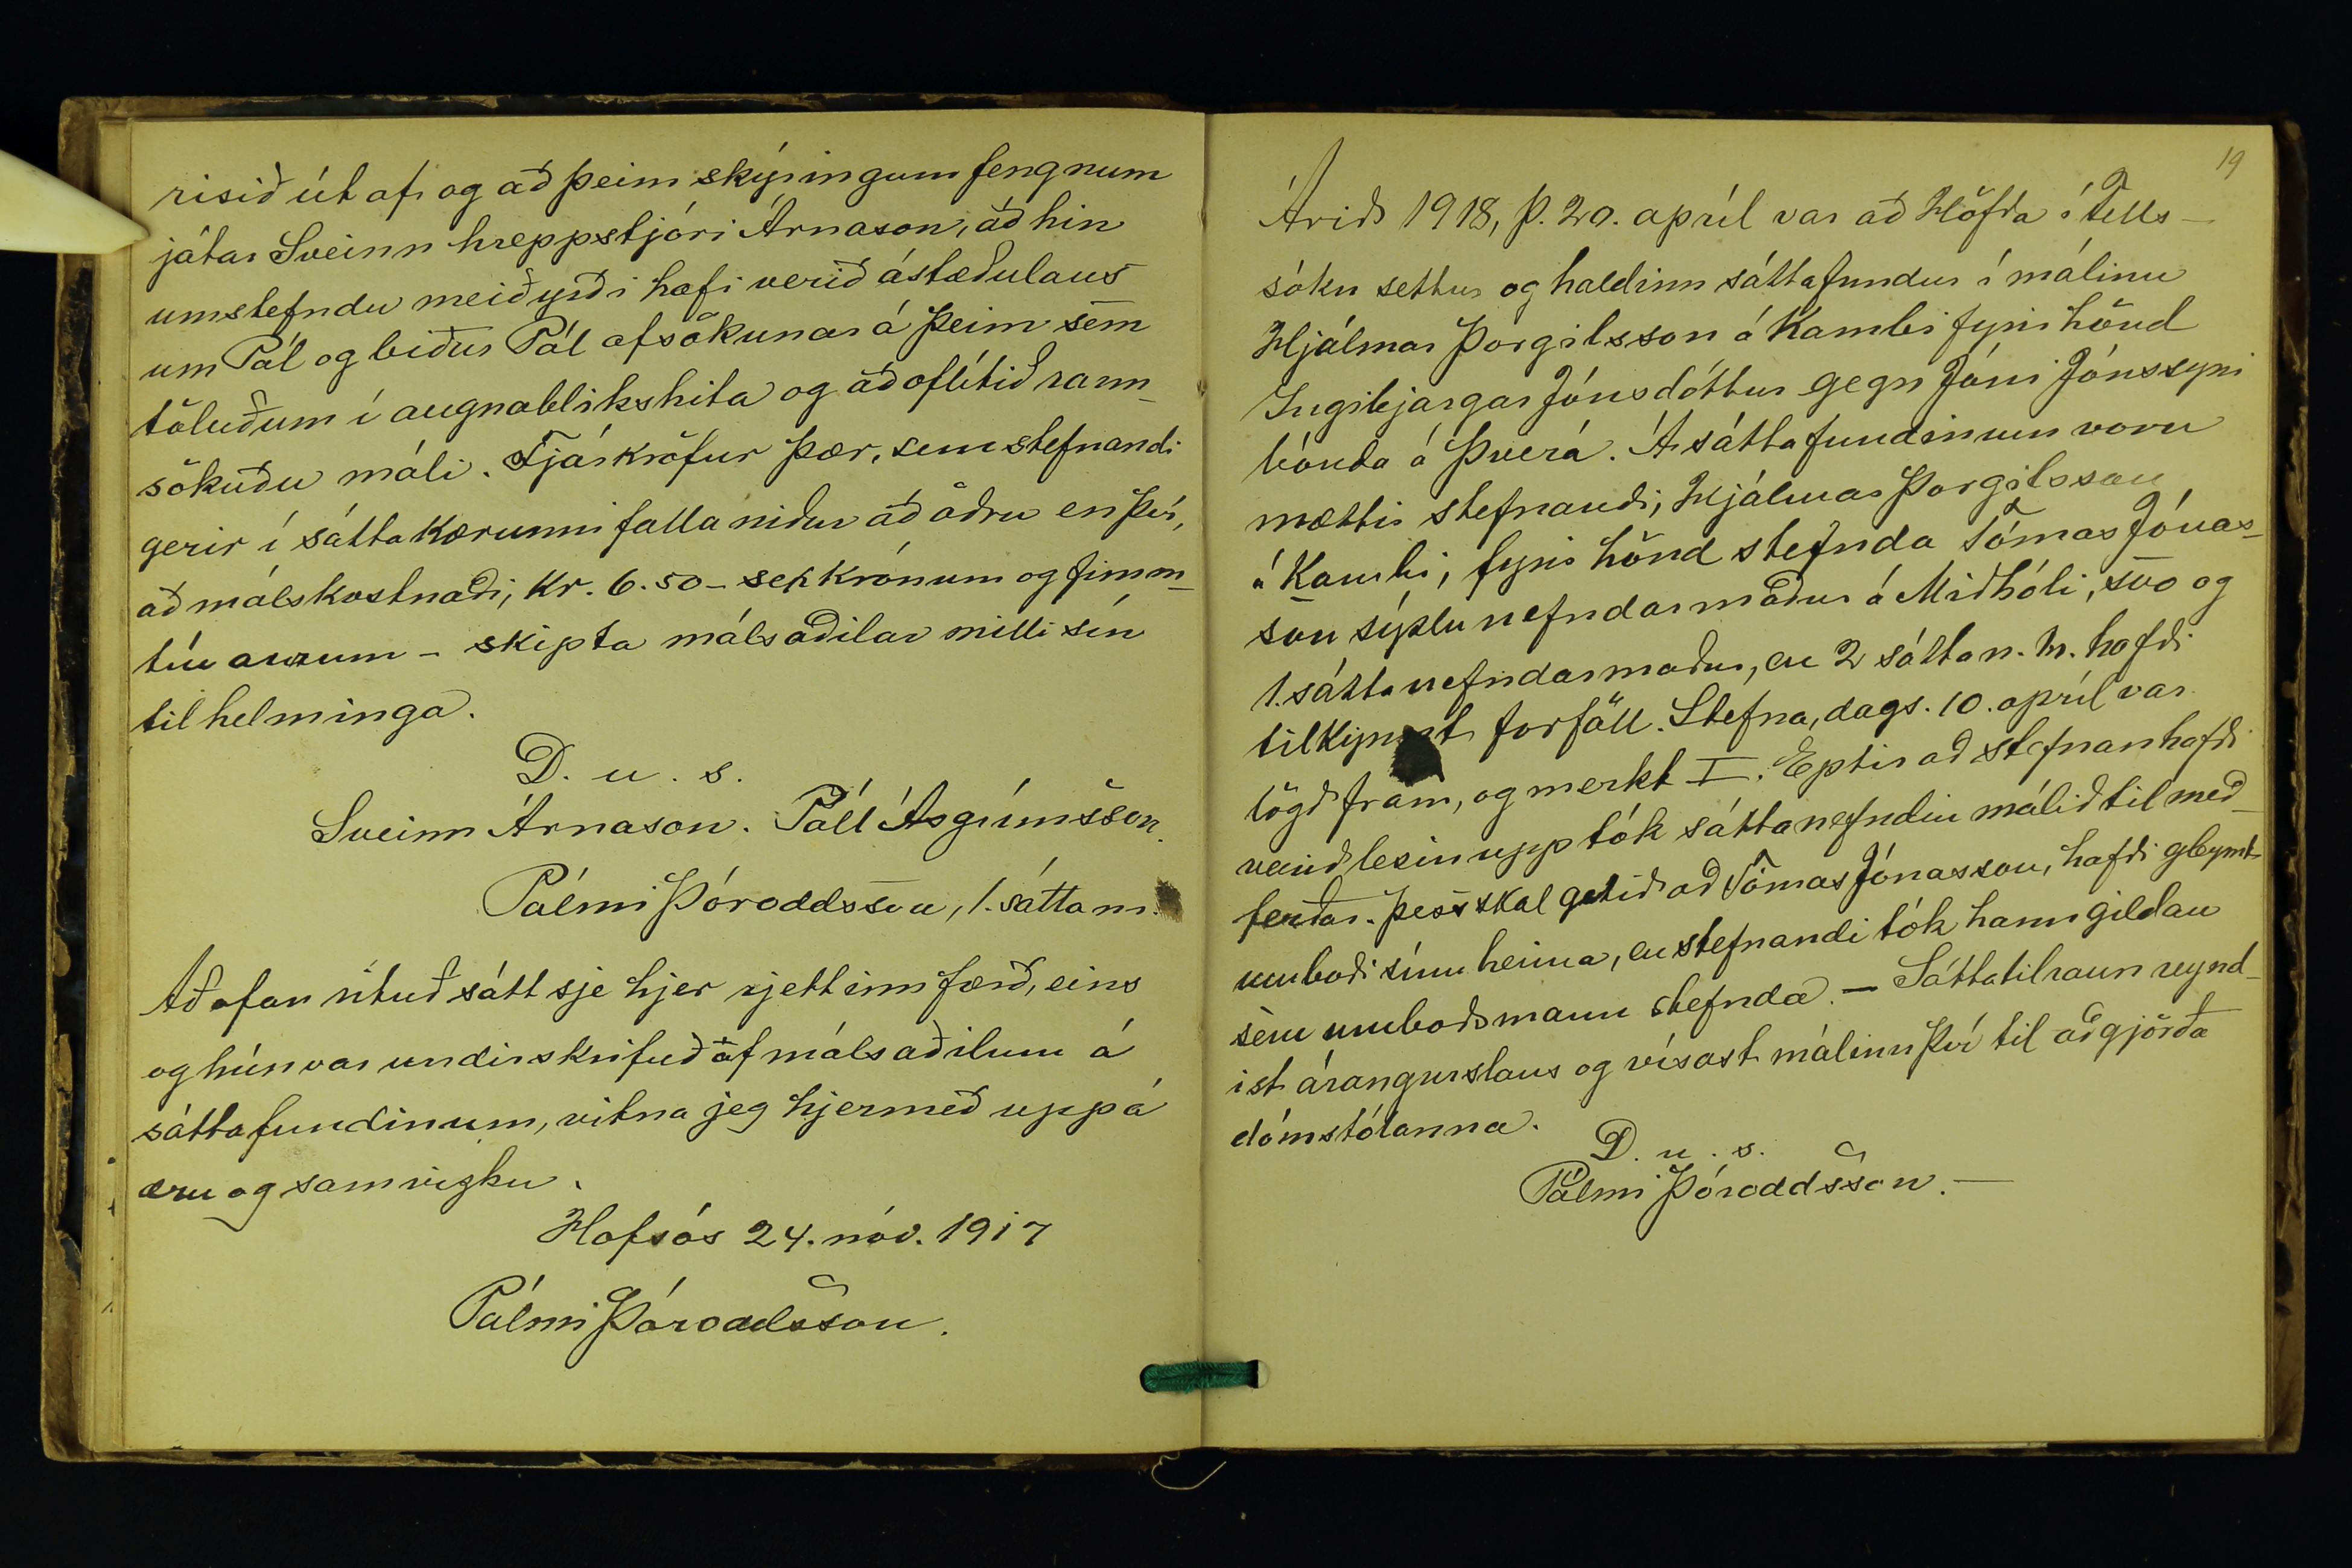 risið út af og að þeim skýringum fengnum
játar Sveinn hreppstjóri Árnason, að hin
umstefndu meiðyrði hafi verið ástæðulaus
um Pál og biður Pál afsökunar á þeim sem
töluðum í augnablikshita og að oflítið rann-
sökuðu máli. Fjárkröfur þær, sem stefnandi
gerir í sáttakærunni falla niður að öðru en því,
að málskostnaði, kr. 6.50 - sex krónum og fimm-
tíu aurum - skipta málsaðilar milli sín
til helminga.
D. u. s.
Sveinn Árnason. Páll Ásgrímsson.
Pálmi Þóroddsson, 1. sáttam.
Að ofan rituð sátt sje hjer rjett innfærð, eins
og hún var undirskrifuð af málsaðilum á
sáttafundinum, vitna jeg hjermeð uppá
æru og samvizku.
Hofsós 24. nóv. 1917
Pálmi Þóroddsson.
19
Árið 1918, þ. 20. apríl var að Höfða í Fells-
sókn settur og haldinn sáttafundur í málinu
Hjálmar Þorgilsson á Kambi fyrir hönd
Ingibjargar Jónsdóttur gegn Jóni Jónssyni
bónda á Þverá. Á sáttafundinum voru
mættir stefnandi, Hjálmar Þorgilsson
á Kambi, fyrir hönd stefnda Tómas Jónas-
son sýslunefndarmaður á Miðhóli, svo og
1. sáttanefndarmaður, en 2 sáttan.m. hafði
tilkynnt forföll. Stefna, dags. 10. apríl var
lögð fram, og merkt I. Eptir að stefnan hafði
verið lesin upp tók sáttanefndin málið til með-
ferðar. Þess skal getið að Tómas Jónasson, hafði gleymt
umboði sínu heima, en stefnandi tók hann gildan
sem umboðsmann stefnda. - Sáttatilraun reynd-
ist árangurslaus og vísast málinu því til aðgjörða
dómstólanna.
D. u. s.
Pálmi Þóroddsson. -